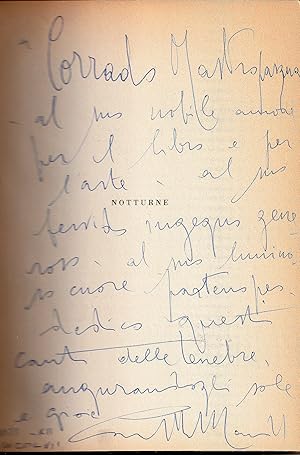 a
Corrado Mastropasqua
al suo nobile amore
per il libro e per
l'arte - al suo
NOTTURNE
fervido ingegno gene
roso - al suo lumino-
so cuore partenopeo
dedico questi
canti delle tenebre,
augurandogli sole
e gioie